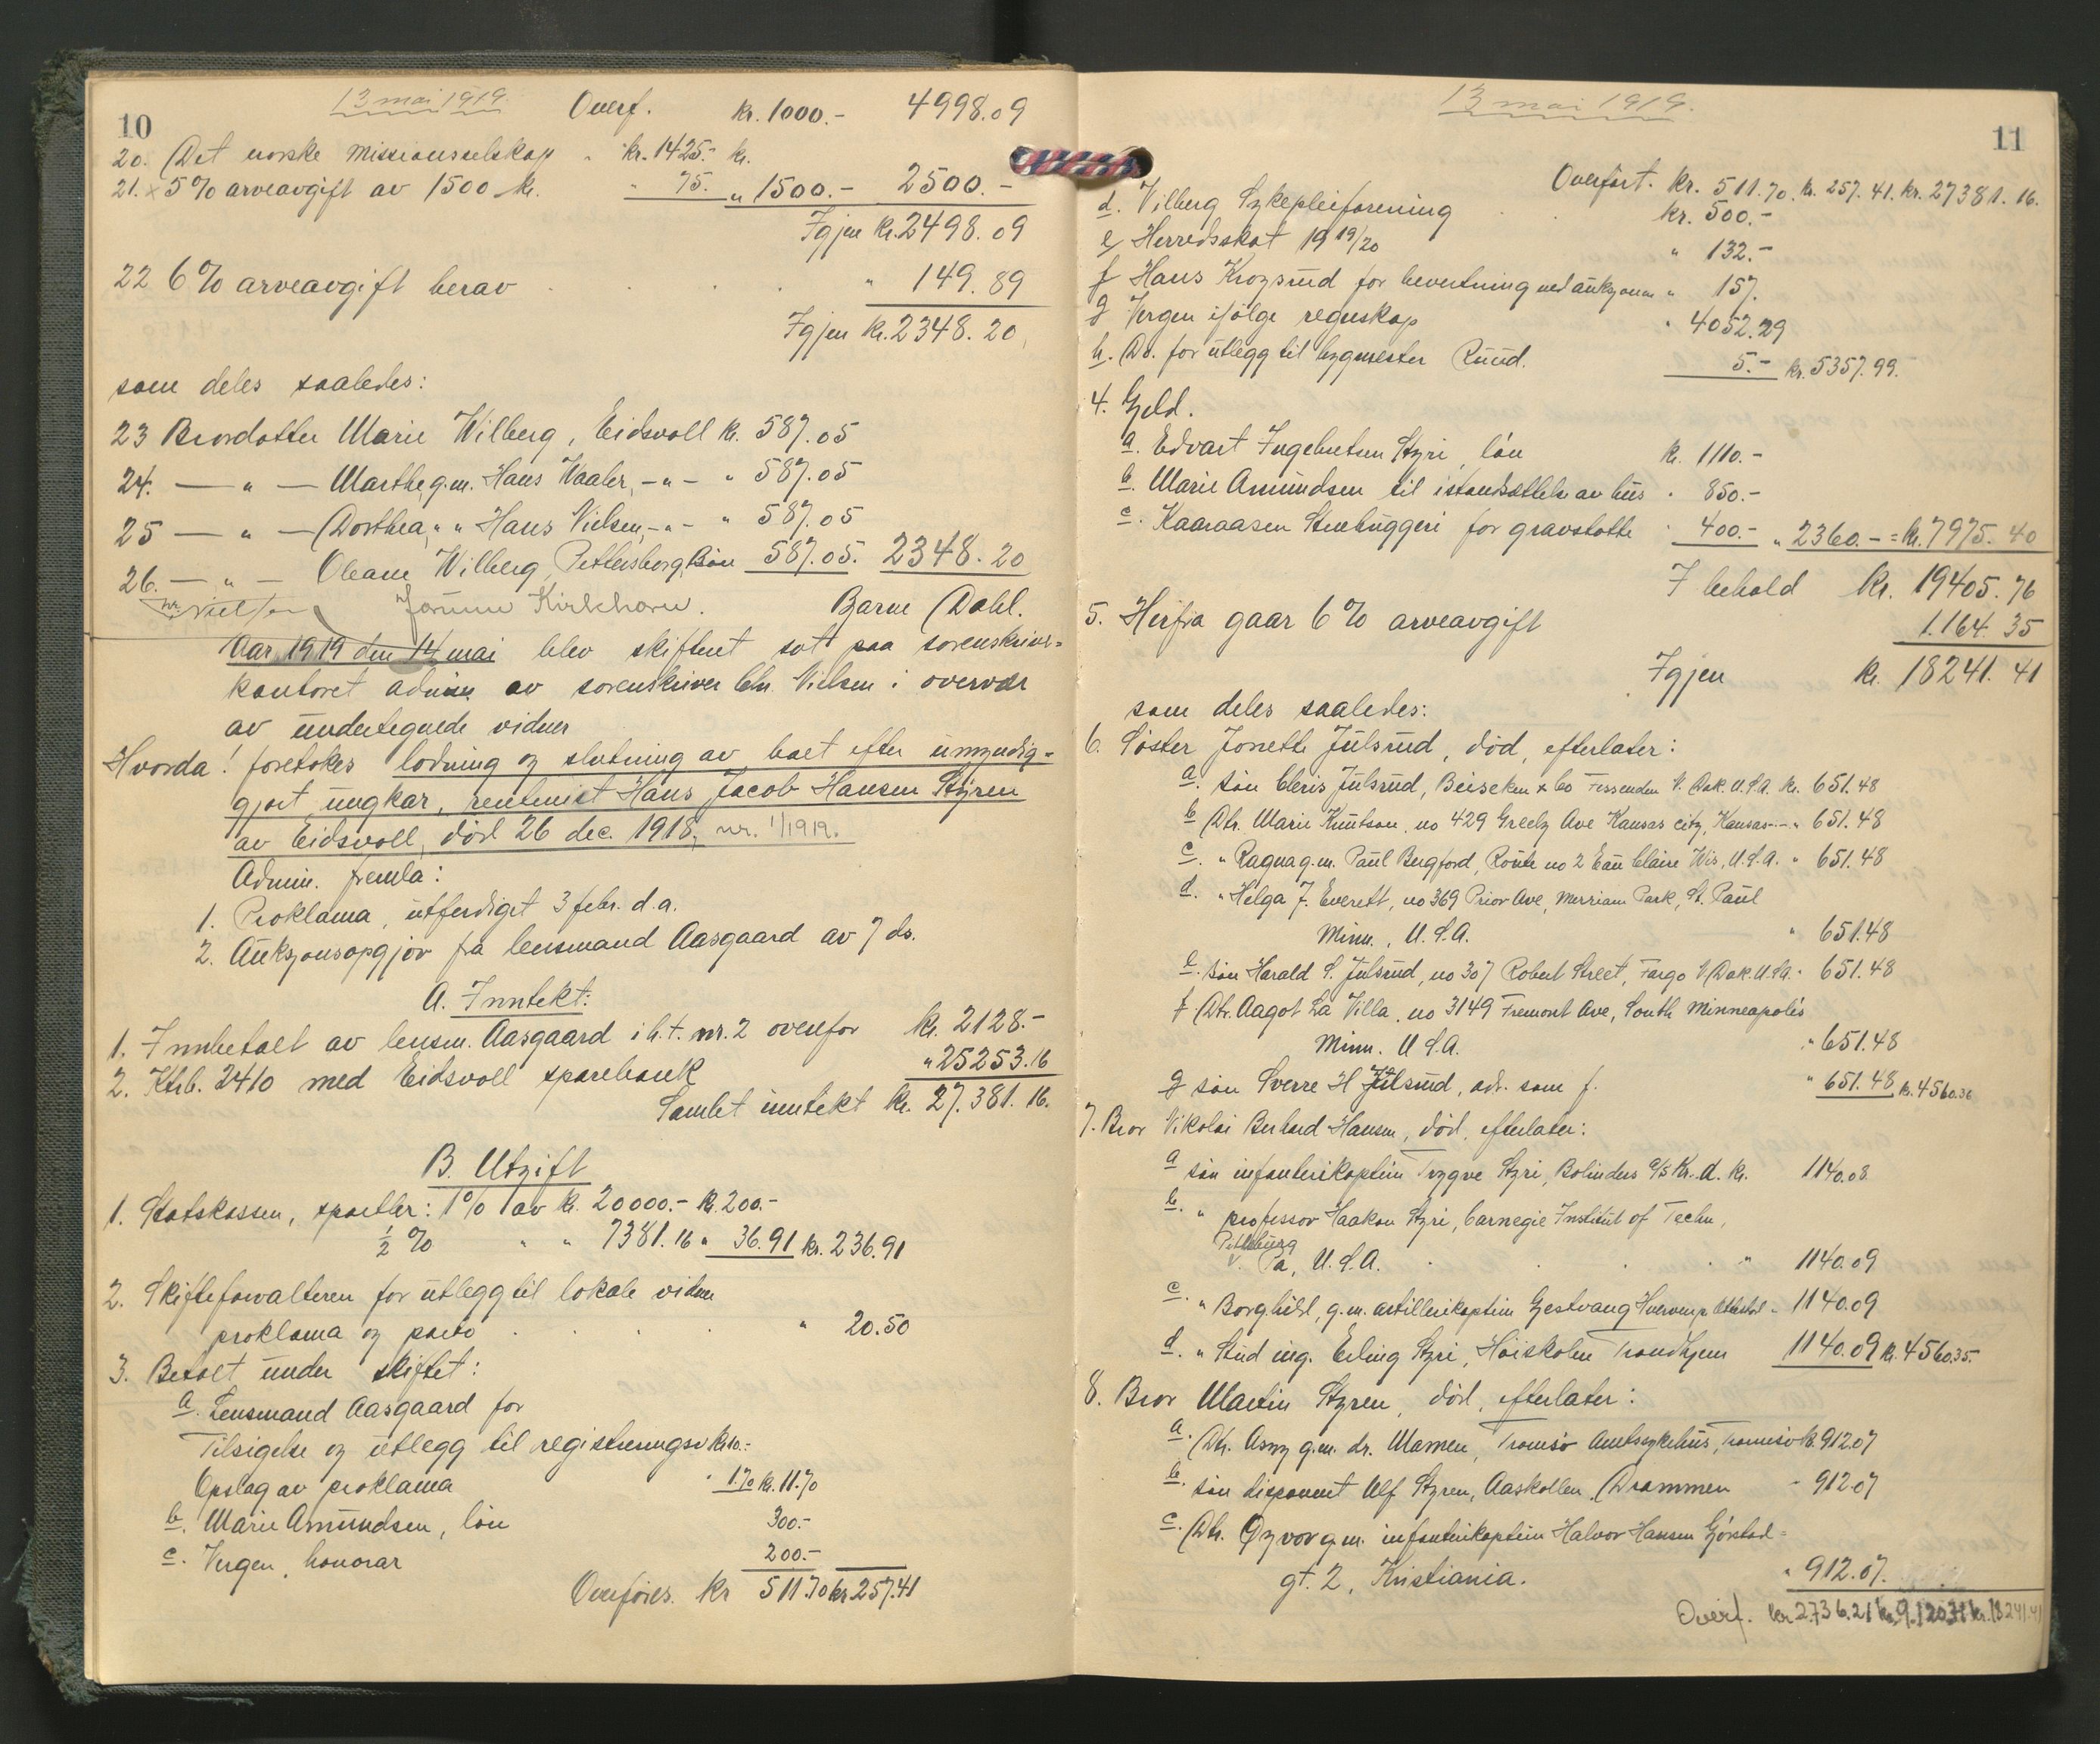 10
13 mai 1919.
Overf. kr. 1000.- 4998.09
20. Det norske missionsselskap " kr. 1425.- kr.
21. x 5% arveavgift av 1500 kr. " 75. " 1500.- 2500.-
Igjen kr. 2498.09
22 6% arveavgift herav " 149.89
Igjen kr. 2348.20
som deles saaledes:
23 Brordatter Marie Wilberg, Eidsvoll kr. 587.05
24. — " — Marthe g.m. Hans Waaler, -"- " 587.05
25 — " — Dorthea, " " Hans Nielsen, -"- " 587.05
26. — " — Oleane Wilberg, 587.05. 2348.20
Nielsen Jørunn Kirkhorn. Barne Dahl.
Aar 1919 den 14 mai blev skifteret sat paa sorenskriver=
kontoret admin av sorenskriver Chr. Nielsen i overvær
av undertegnede vidner
Hvorda! foretokes lodning og slutning av boet efter umyndig=
gjort ungkar, rentenist Hans Jacob Hansen Styren
av Eidsvoll, død 26 dec. 1918, nr. 1/1919.
Admin. fremla:
1. Proklama, utferdiget 3 febr. d.a.
2. Auksjonsopgjør fra lensmand Aasgaard av 7 ds.
A. Inntekt:
1. Innbetalt av lensm. Aasgaard i h.t. nr. 2 ovenfor kr. 2128.-
2. Ktrb. 2410 med Eidsvoll sparebank " 25253.16
Samlet inntekt kr. 27.381.16.
B. Utgift
1. Statskassen, sportler: 1% av kr. 20000.- kr. 200.-
½ % " " 7381.16 " 36.91 kr. 236.91
2. Skifteforvalteren for utlegg til lokale vidner
proklama og porto " 20.50
3. Betalt under skiftet:
a. Lensmand Aasgaard for
Tilsigelse og utlegg til registreringen kr. 10.-
Opslag av proklama " 1.70 kr. 11.70
b. Marie Amundsen, løn 300.-
c. Vergen, honorar 200.-
Overføres. kr 511.70 kr. 257.41
11
13 mai 1919.
Overført. kr. 511.70. kr. 257.41. kr. 27381.16.
d. Vilberg Sykepleiforening kr. 500.-
e. Herredsskat 1919/20 " 132.-
f Hans Krogsrud for bevertning ved auksjonen " 157.
g Vergen ifølge regnskap " 4052.29
h. Do. for utlegg til bygmester Ruud. 5.- kr. 5357.99.
4. Gjeld.
a. Edvart Ingebretsen Styri, løn kr. 1110.-
b. Marie Amundsen til istandsættelse av hus " 850.-
c. Kaaraasen Stenhuggeri for gravstøtte " 400.- " 2360.- = kr. 7975.40
I behold kr. 19405.76
5. Herfra gaar 6% arveavgift 1.164.35
Igjen kr. 18241.41
som deles saaledes:
6. Søster Jonette Julsrud, død, efterlater:
a. søn Chris Julsrud, Beiseken & Co Fessenden N. Dak. U.S.A. kr. 651.48
b Dtr. Marie Knutson, no 429 Greely Ave Kansas city, Kansas -"- " 651.48
c. " Ragna g.m. Paul Bugford, Route no 2 Eau Claire Wis, U.S.A. " 651.48
d. " Helga J. Everett, no 369 Prior Ave, Merriam Park, St. Paul
Minn., U.S.A. " 651.48
e. søn Harald S. Julsrud, no 307 Robert Street, Fargo N Dak. U.S.A. " 651.48
f Dtr. Aagot La Villa, no 3149 Fremont Ave, South Minneapolis
Minn. U.S.A. " 651.48
g søn Sverre H Julsrud, adr. som f. " 651.48 kr. 4560.36
7. Bror Nikolai Berhard Hansen, død, efterlater:
a søn infanterikaptein Trygve Styri, Bolinders a/s Kr.a. kr. 1140.08
b. " professor Haakon Styri, Carnegie Institut of Techn,
Pittsburg
Pa, U.S.A. " 1140.09
c. " Borghild, g.m. artillerikaptein Gjestvang " 1140.09
d. " Stud ing. Erling Styri, Høiskolen Trondhjem 1140.09 kr. 4560.35.
8. Bror Martin Styren, død, efterlater:
a. Dtr. Asny g.m. dr. Mamen, Tromsø Amtssykehus, Tromsø kr. 912.07
b. søn disponent Ulf Styren, Aaskollen, Drammen " 912.07
c. Dtr. Øyvor g.m. infanterikaptein Halvor Hansen Gjørstad=
gt. 2, Kristiania. " 912.07.
Overf. kr 2736.21 kr. 9.120.71 kr. 18241.41